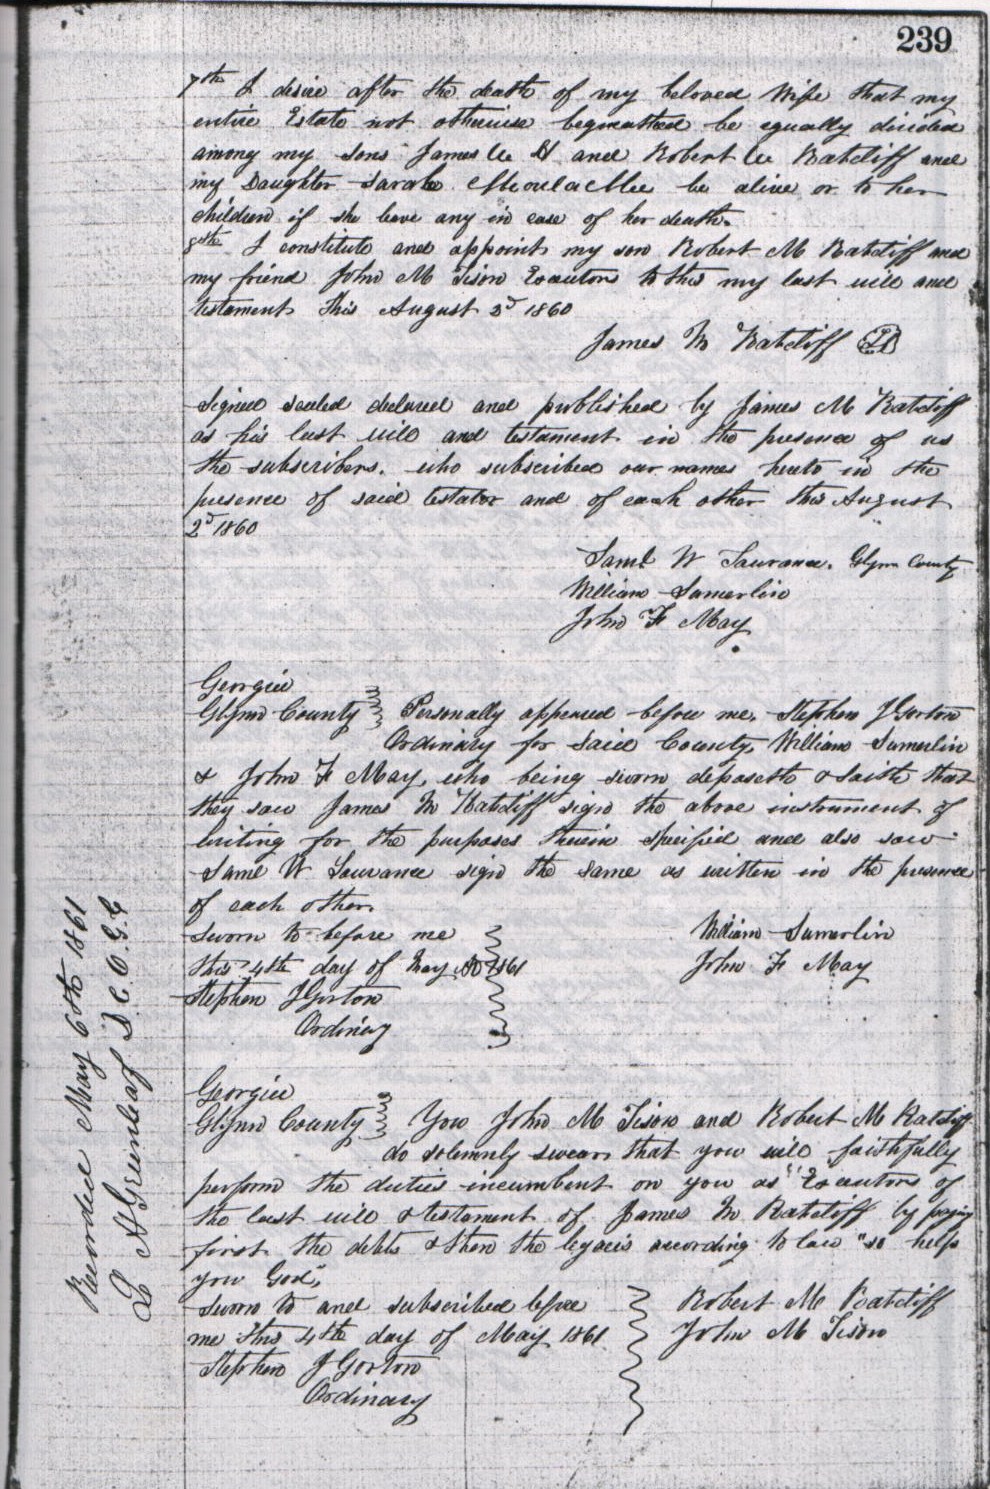 239
7th I desire after the death of my beloved Wife that my
entire Estate not otherwise bequeathed be equally divided
among my sons James and Robert M Ratcliff and
my Daughter Sarah be alive or to her
children if she leave any in case of her death.
8th I constitute and appoint my son Robert M Ratcliff and
my friend John M Tison Executors to this my last will and
testament This August 2d 1860
James M Ratcliff
Signed sealed declared and published by James M Ratcliff
as his last will and testament in the presence of us
the subscribers. who subscribed our names hereto in the
presence of said testator and of each other this August
2d 1860
Saml W Laurance. Glynn County
William Sumerlin
John F May
Georgia
Glynn County Personally appeared before me, Stephen J Gorton
Ordinary for said County, William Sumerlin
& John F May, who being sworn deposeth & saith that
they saw James M Ratcliff sign the above instrument of
writing for the purposes therein specified and also saw
Saml W Laurance sign the same as written in the presence
of each other.
Sworn to before me William Sumerlin
this 4th day of May AD 1861 John F May
Stephen J Gorton
Ordinary
Georgia
Glynn County You John M Tison and Robert M Ratcliff
do solemnly swear that you will faithfully
perform the duties incumbent on you as Executors of
the last will & testament of James M Ratcliff by paying
first the debts & then the legacies according to law "so help
you God",
Sworn to and subscribed before Robert M Ratcliff
me this 4th day of May 1861 John M Tison
Stephen J Gorton
Ordinary
Recorded May 6th 1861
L A Greenleaf D.C.O.G.C